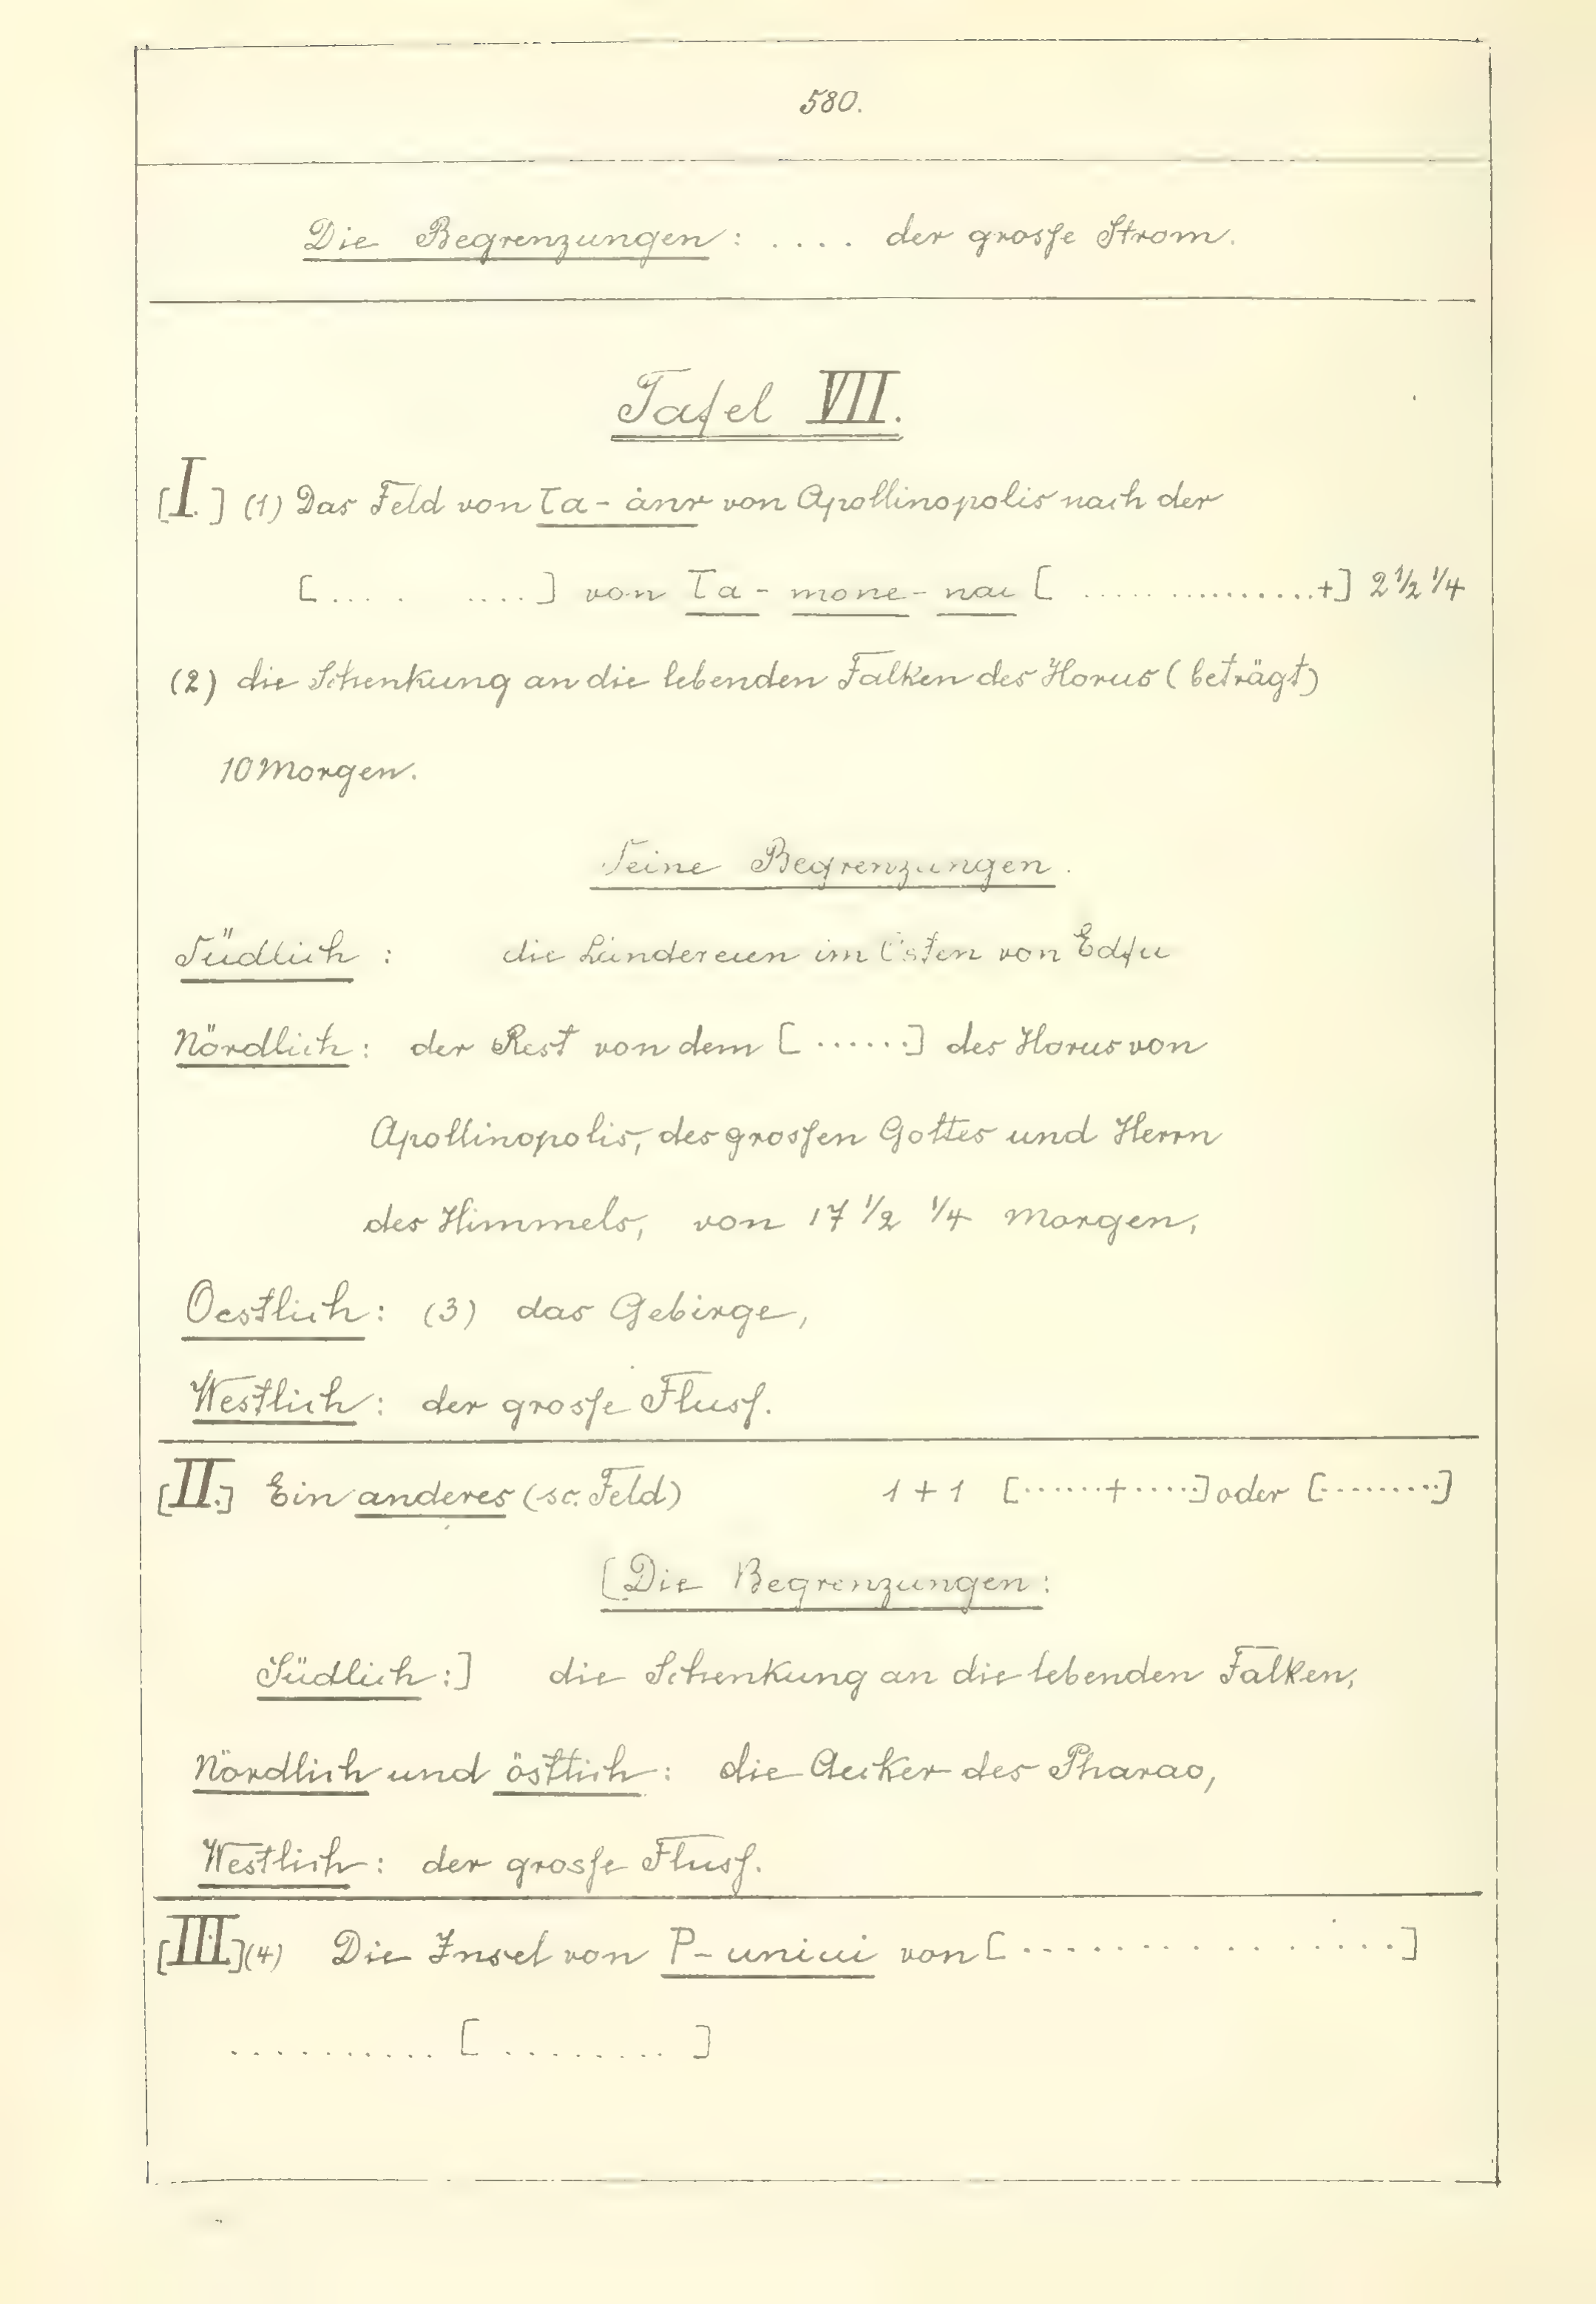 580.
Die Begrenzungen: .... der grosse Strom.
Tafel VII.
[I.] (1) Das Feld von Ta-ȧnr von Apollinopolis nach der
[.... ....] von Ta-mone-nai [ ................+] 2 1/2 1/4
(2) die Schenkung an die lebenden Falken des Horus (beträgt)
10 Morgen.
Seine Begrenzungen.
Südlich : die Ländereien im Osten von Edfu
Nördlich: der Rest von dem [......] des Horus von
Apollinopolis, des grossen Gottes und Herrn
des Himmels, von 17 1/2 1/4 Morgen,
Oestlich: (3) das Gebirge,
Westlich: der grosse Fluss.
[II.] Ein anderes (sc. Feld) 1 + 1 [......+.....] oder [.........]
[Die Begrenzungen:
Südlich:] die Schenkung an die lebenden Falken,
Nördlich und östlich: die Aecker des Pharao,
Westlich: der grosse Fluss.
[III.] (4) Die Insel von P-uniui von [................]
.......... [.........]